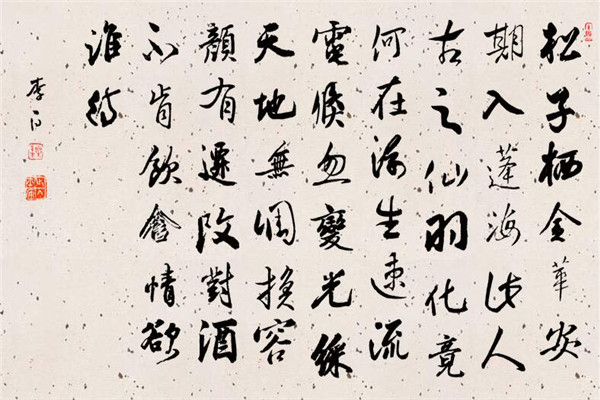 松子栖金華安
期入蓬海此人
古之仙羽化竟
何在浮生速流
電倏忽變光綵
天地無凋換容
顏有遷改對酒
不肯飲含情欲
誰待
李白